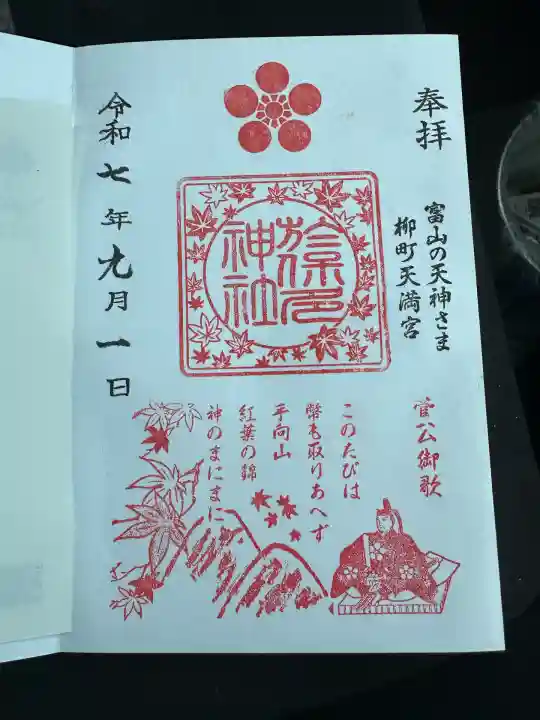 奉拝
富山の天神さま
柳町天満宮
於保多
神社
令和七年九月一日
菅公御歌
このたびは
幣も取りあへず
手向山
紅葉の錦
神のまにまに